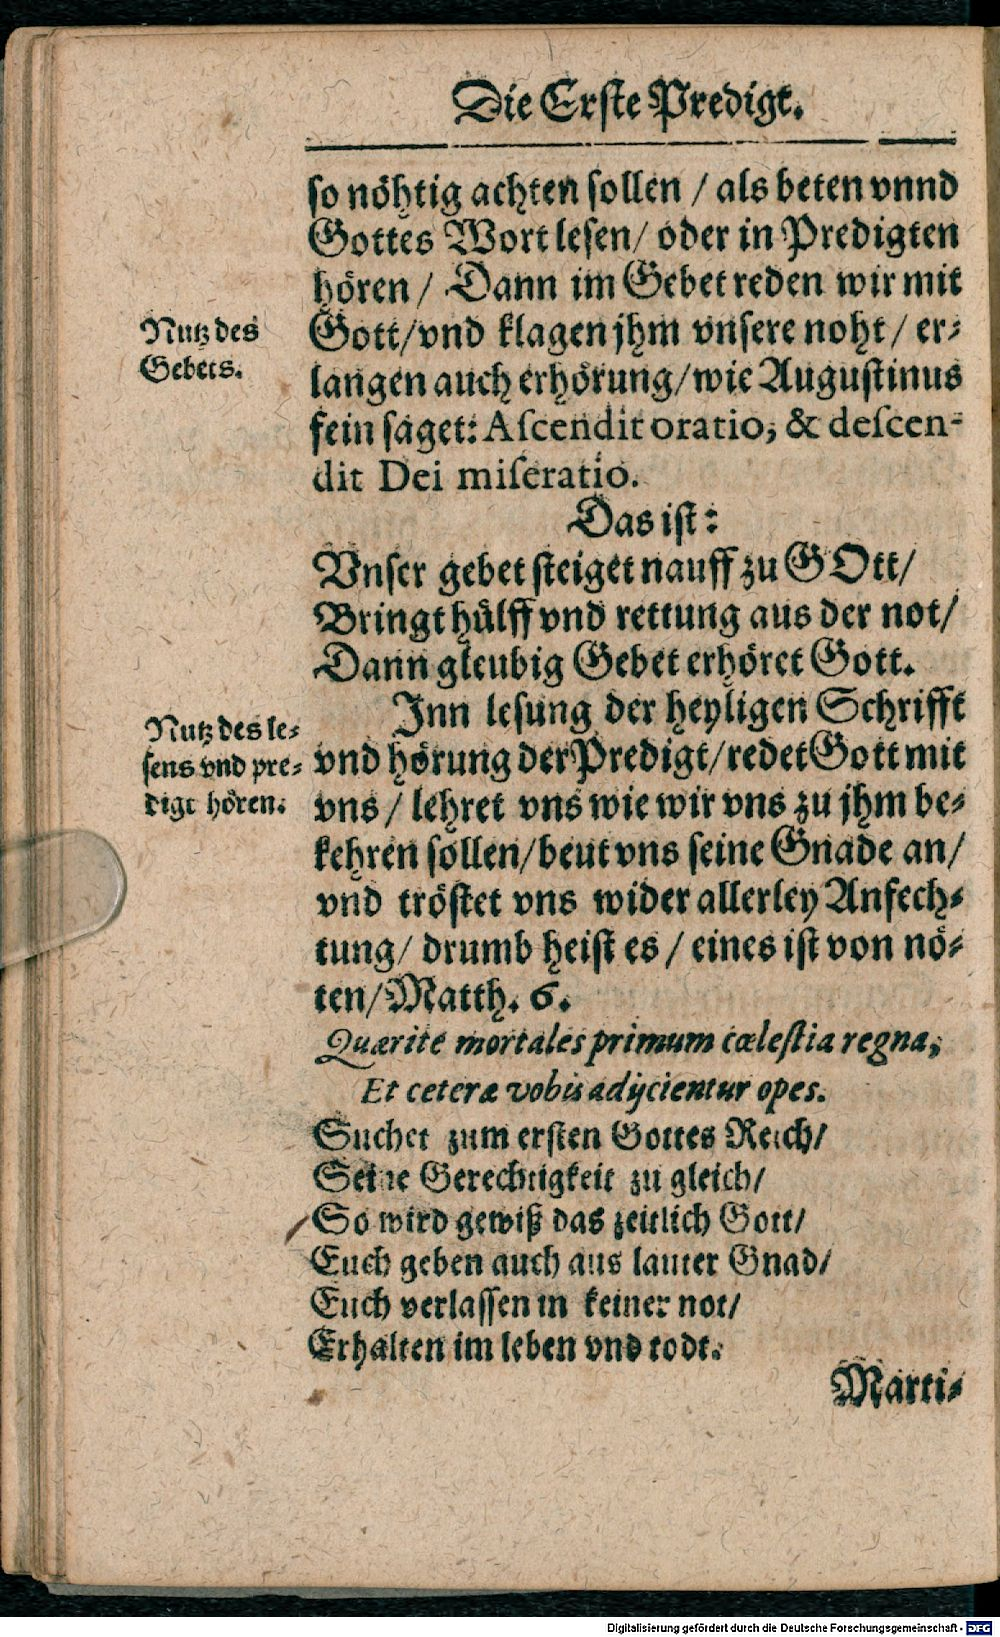 Die Erſte Predigt.
ſo nöhtig achten ſollen / als beten vnnd
Gottes Wort leſen/ oder in Predigten
hören / Dann im Gebet reden wir mit
Nutz des
Gebets.
Gott/vnd klagen jhm vnſere noht / er-
langen auch erhörung/wie Auguſtinus
fein ſaget: Aſcendit oratio, & deſcen-
dit Dei miſeratio.
Das iſt:
Vnſer gebet ſteiget nauff zu GOtt/
Bringt hülff vnd rettung aus der not/
Dann gleubig Gebet erhöret Gott.
Nutz des le-
ſens vnd pre-
digt hören.
Jnn leſung der heyligen Schrifft
vnd hörung der Predigt/redet Gott mit
vns / lehret vns wie wir vns zu jhm be-
kehren ſollen/beut vns ſeine Gnade an/
vnd tröſtet vns wider allerley Anfech-
tung/ drumb heiſt es / eines iſt von nö-
ten/Matth. 6.
Quærite mortales primum cæleſtia regna,
Et ceteræ vobis adijcientur opes.
Suchet zum erſten Gottes Reich/
Seine Gerechtigkeit zu gleich/
So wird gewiß das zeitlich Gott/
Euch geben auch aus lauter Gnad/
Euch verlaſſen in keiner not/
Erhalten im leben vnd todt.
Marti-
Digitalisierung gefördert durch die Deutsche Forschungsgemeinschaft - DFG